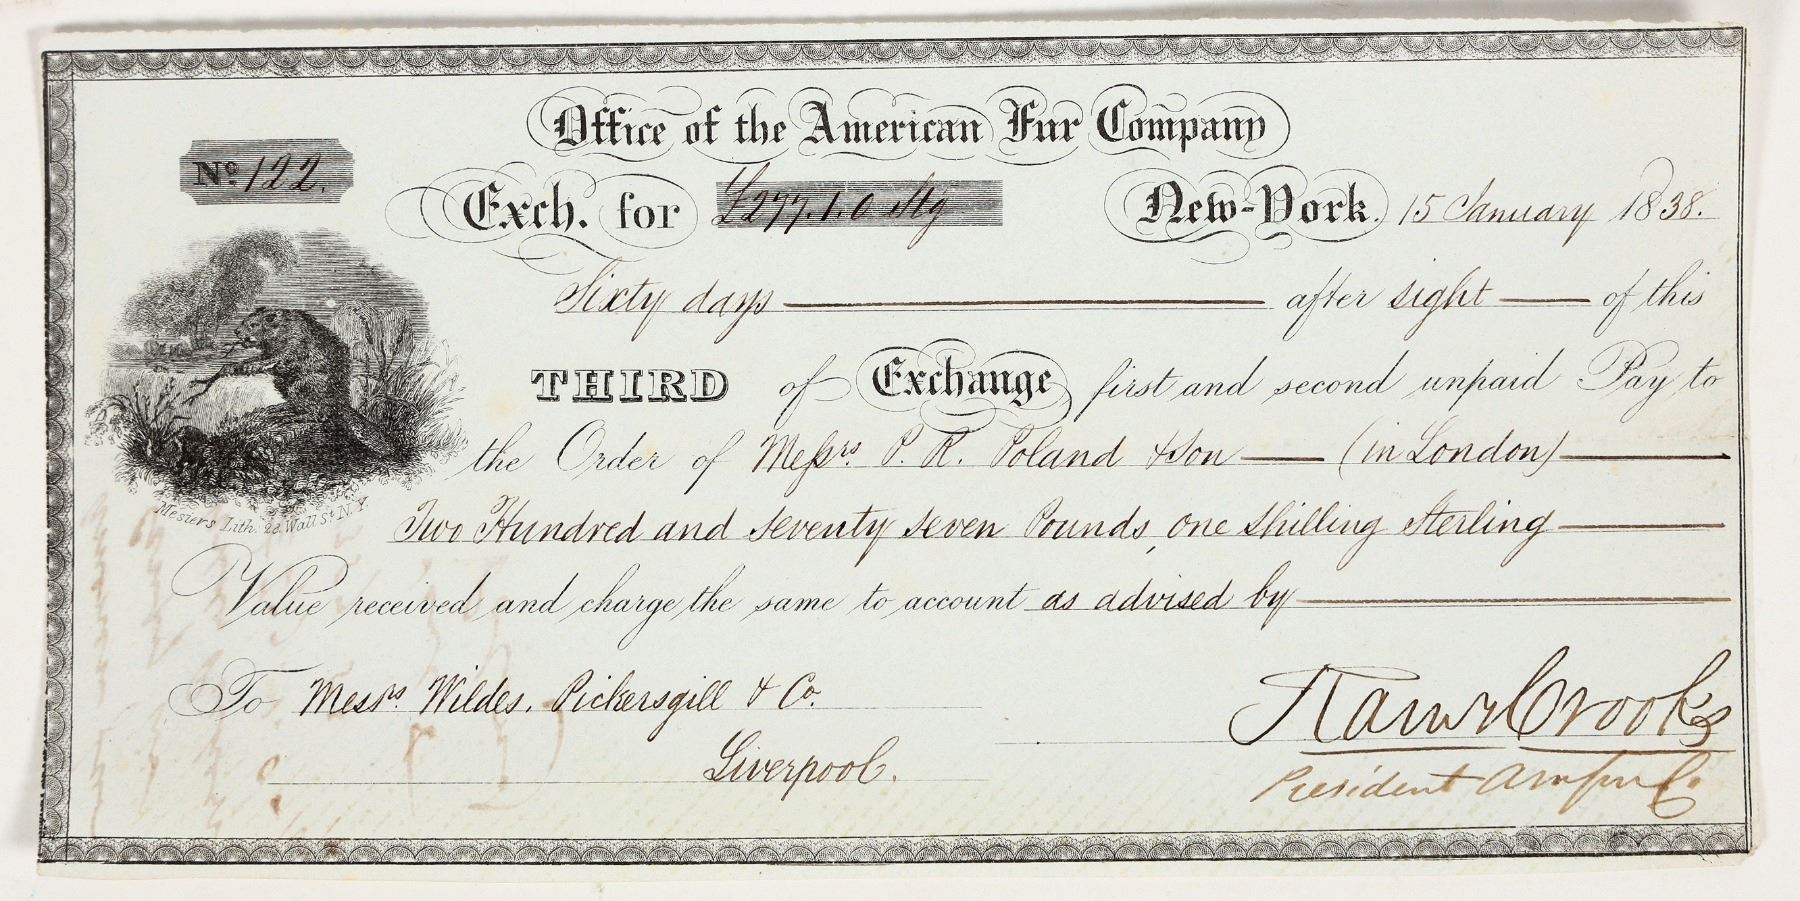 Office of the American Fur Company
No. 122.
Exch. for £277.1.0 Stg New-York. 15 January 1838.
Sixty days after sight of this
THIRD of Exchange first and second unpaid Pay to
the Order of Messrs. P. R. Poland & Son (in London)
Two Hundred and seventy seven Pounds, one shilling Sterling
Value received and charge the same to account as advised by
To Messrs. Wildes, Pickersgill & Co.
Liverpool.
Ramsay Crooks
President Am fur Co.
Mesier's Lith. 28 Wall St. N.Y.